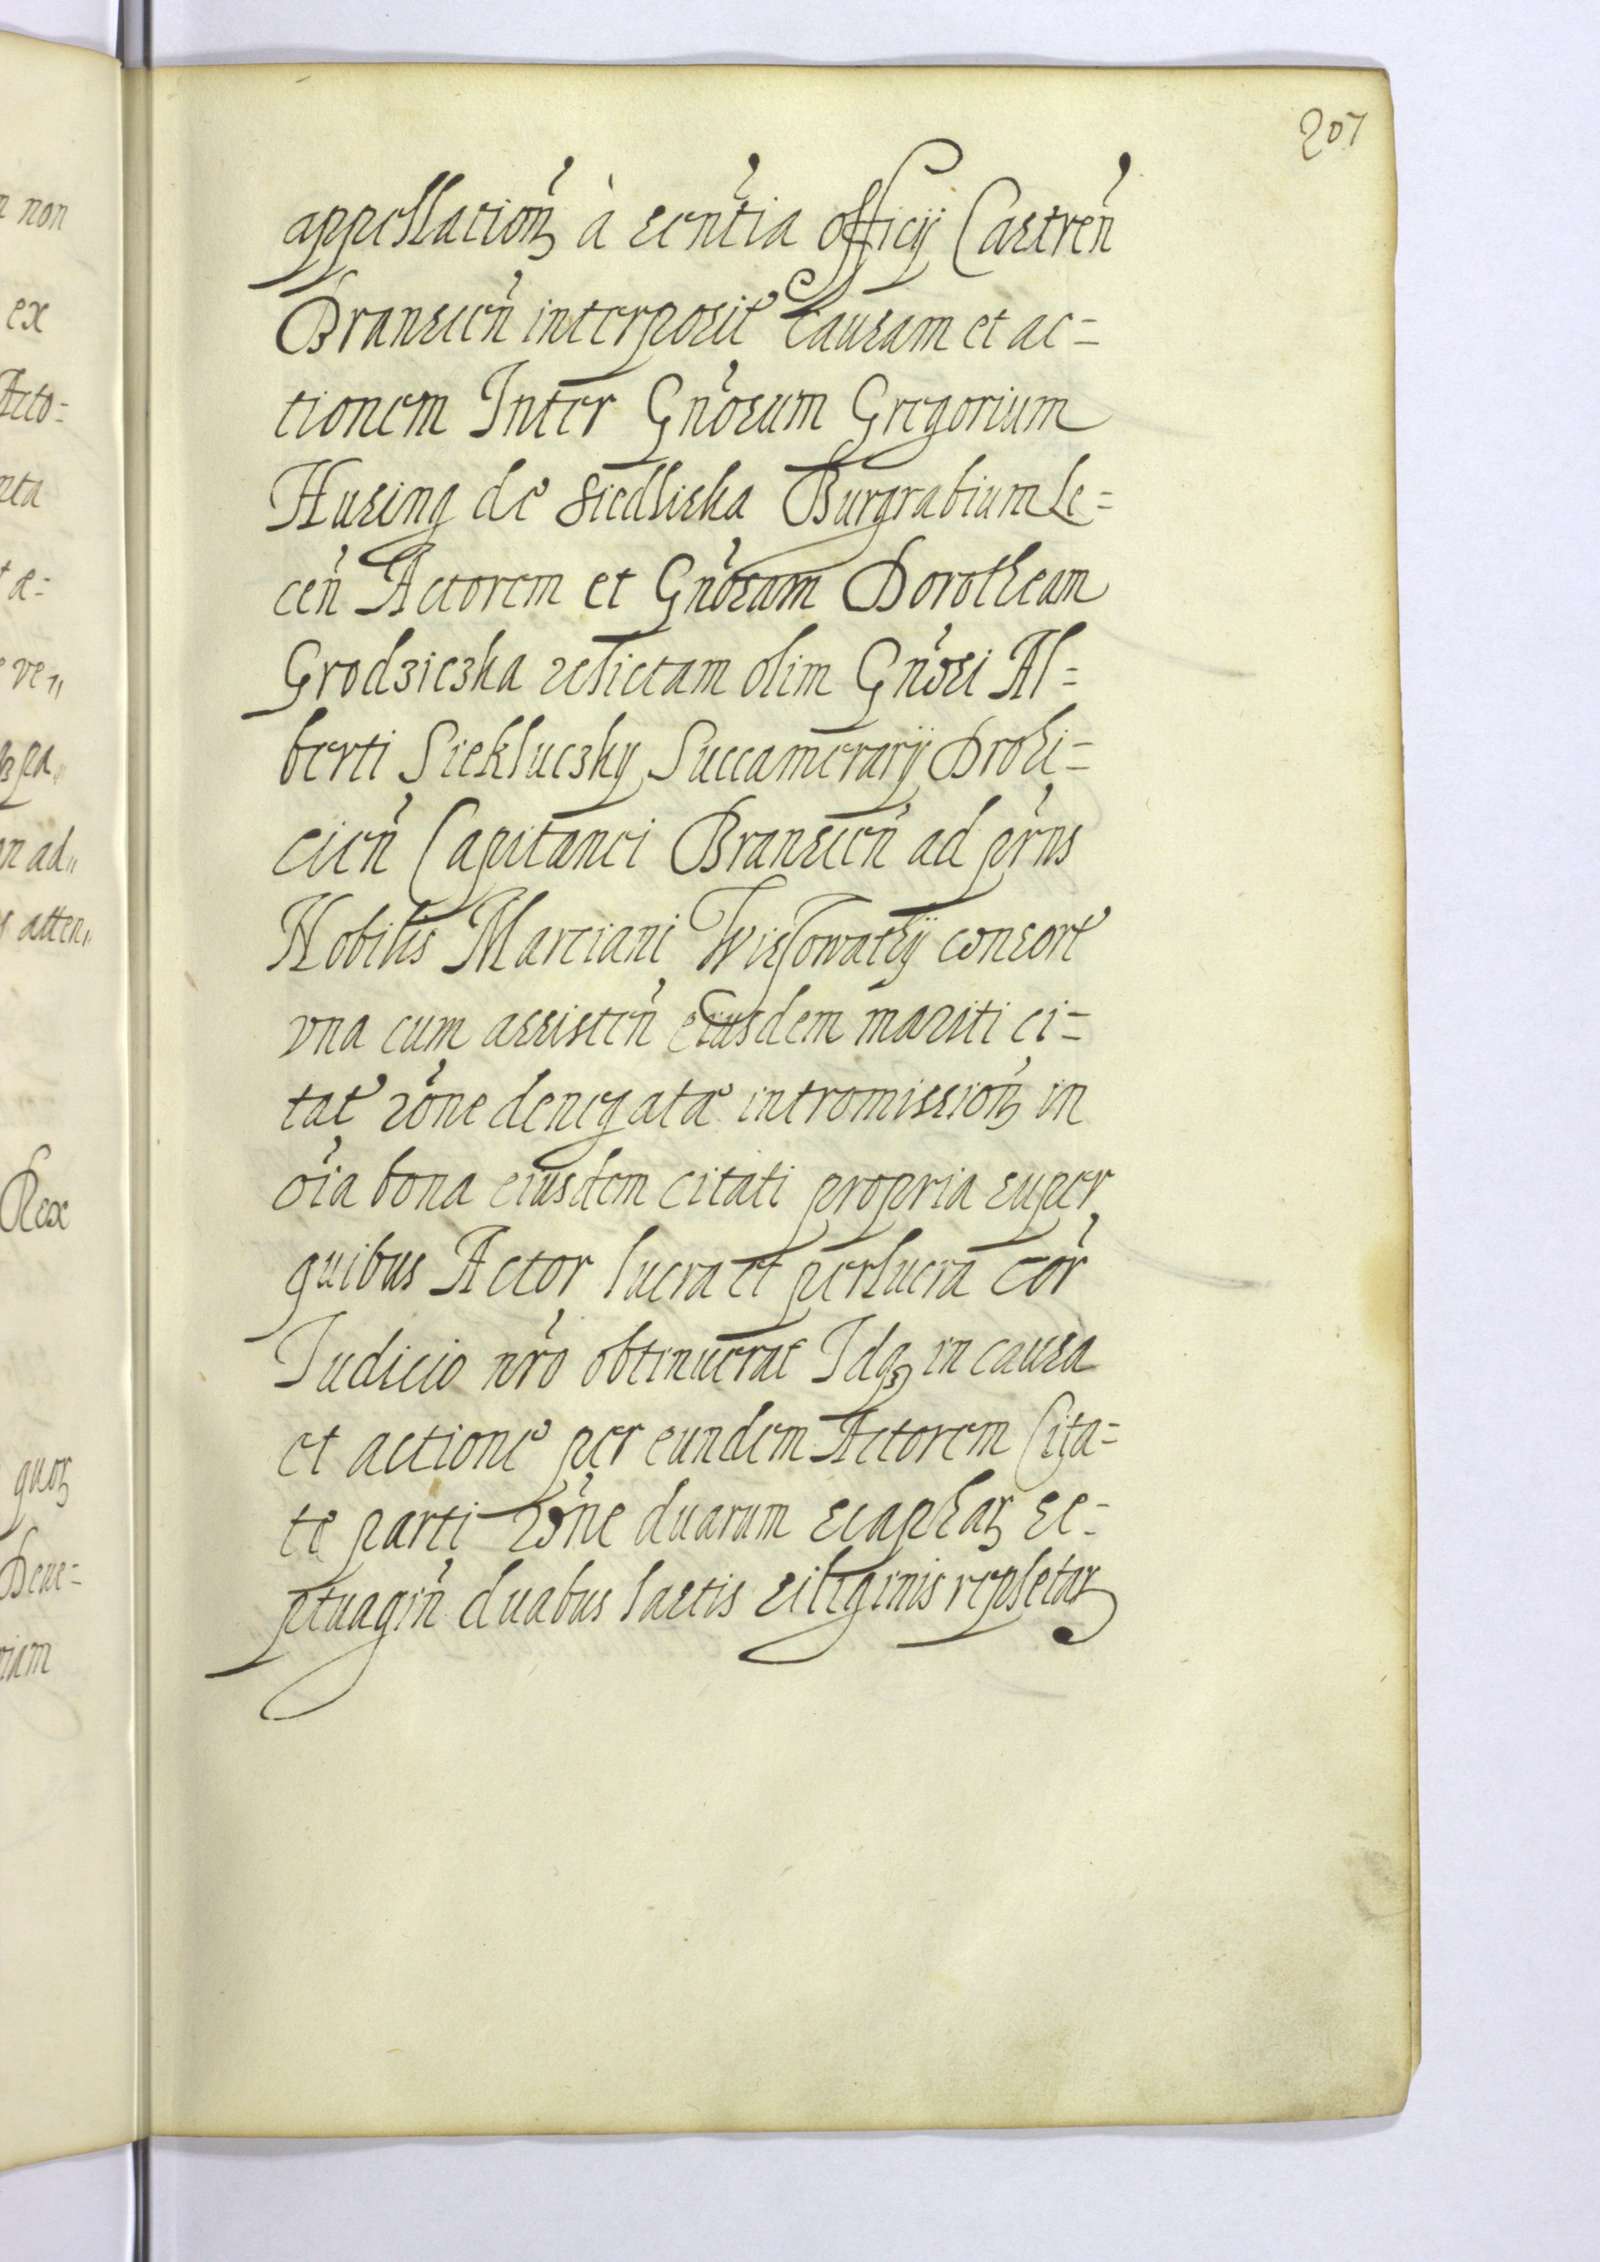 207
appellation̄ à sentn̄tia officij Castren̄
Branscen̄ interposit̄ causam et ac=
tionem Inter Gn̄osum Gregorium
Husing de Siedliska Burgrabium Le=
cen̄ Actorem et Gn̄osam Dorotheam
Grodziczka relictam olim Gn̄osi Al=
berti Siekluczky Succamerarij Drohi=
cien̄ Capitanei Branscen̄ ad prn̄s
Nobilis Marciani Wissowathij consort̄
vna cum assisten̄ eiusdem mariti ci=
tat̄ rōne denegatæ intromission̄ in
oīa bona eiusdem citati propria super
quibus Actor lucra et perlucra cor̄
Judicio nr̄o obtinuerat Idq in causa
et actione per eundem Actorem Cita=
te parti rōne duarum scaphar se=
ptuagin̄ duabus lastis siliginis repletar
n non
ex
Acto=
nta
t æ=
ve„
n ad„
s atten„
Rex
quor
Deue=
riam